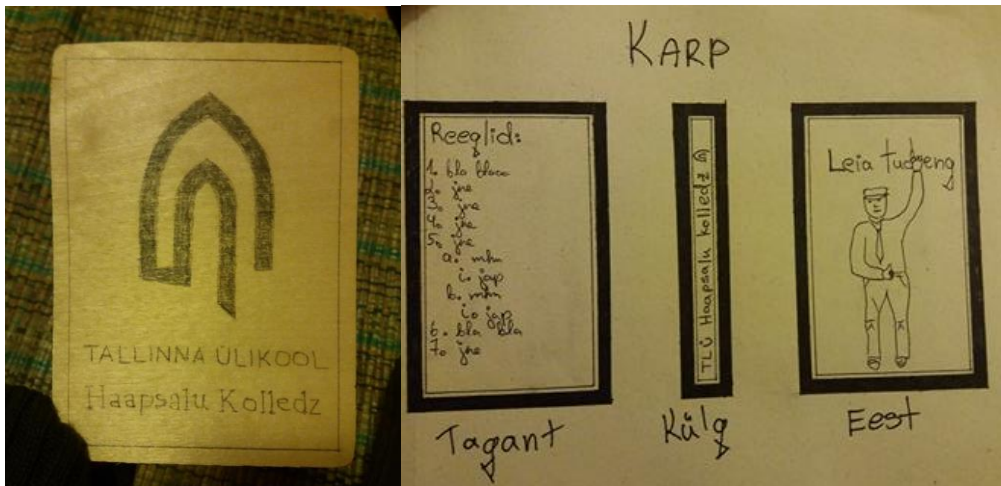 TALLINNA ÜLIKOOL
Haapsalu Kolledz
KARP
Reeglid:
1. bla blaaa
2. jne
3. jne
4. jne
5. jne
a. mhm
i. jap
b. mhm
i. jap
6. bla bla
7. jne
Tagant
TLÜ Haapsalu kolledz
Külg
Leia tudeng
Eest